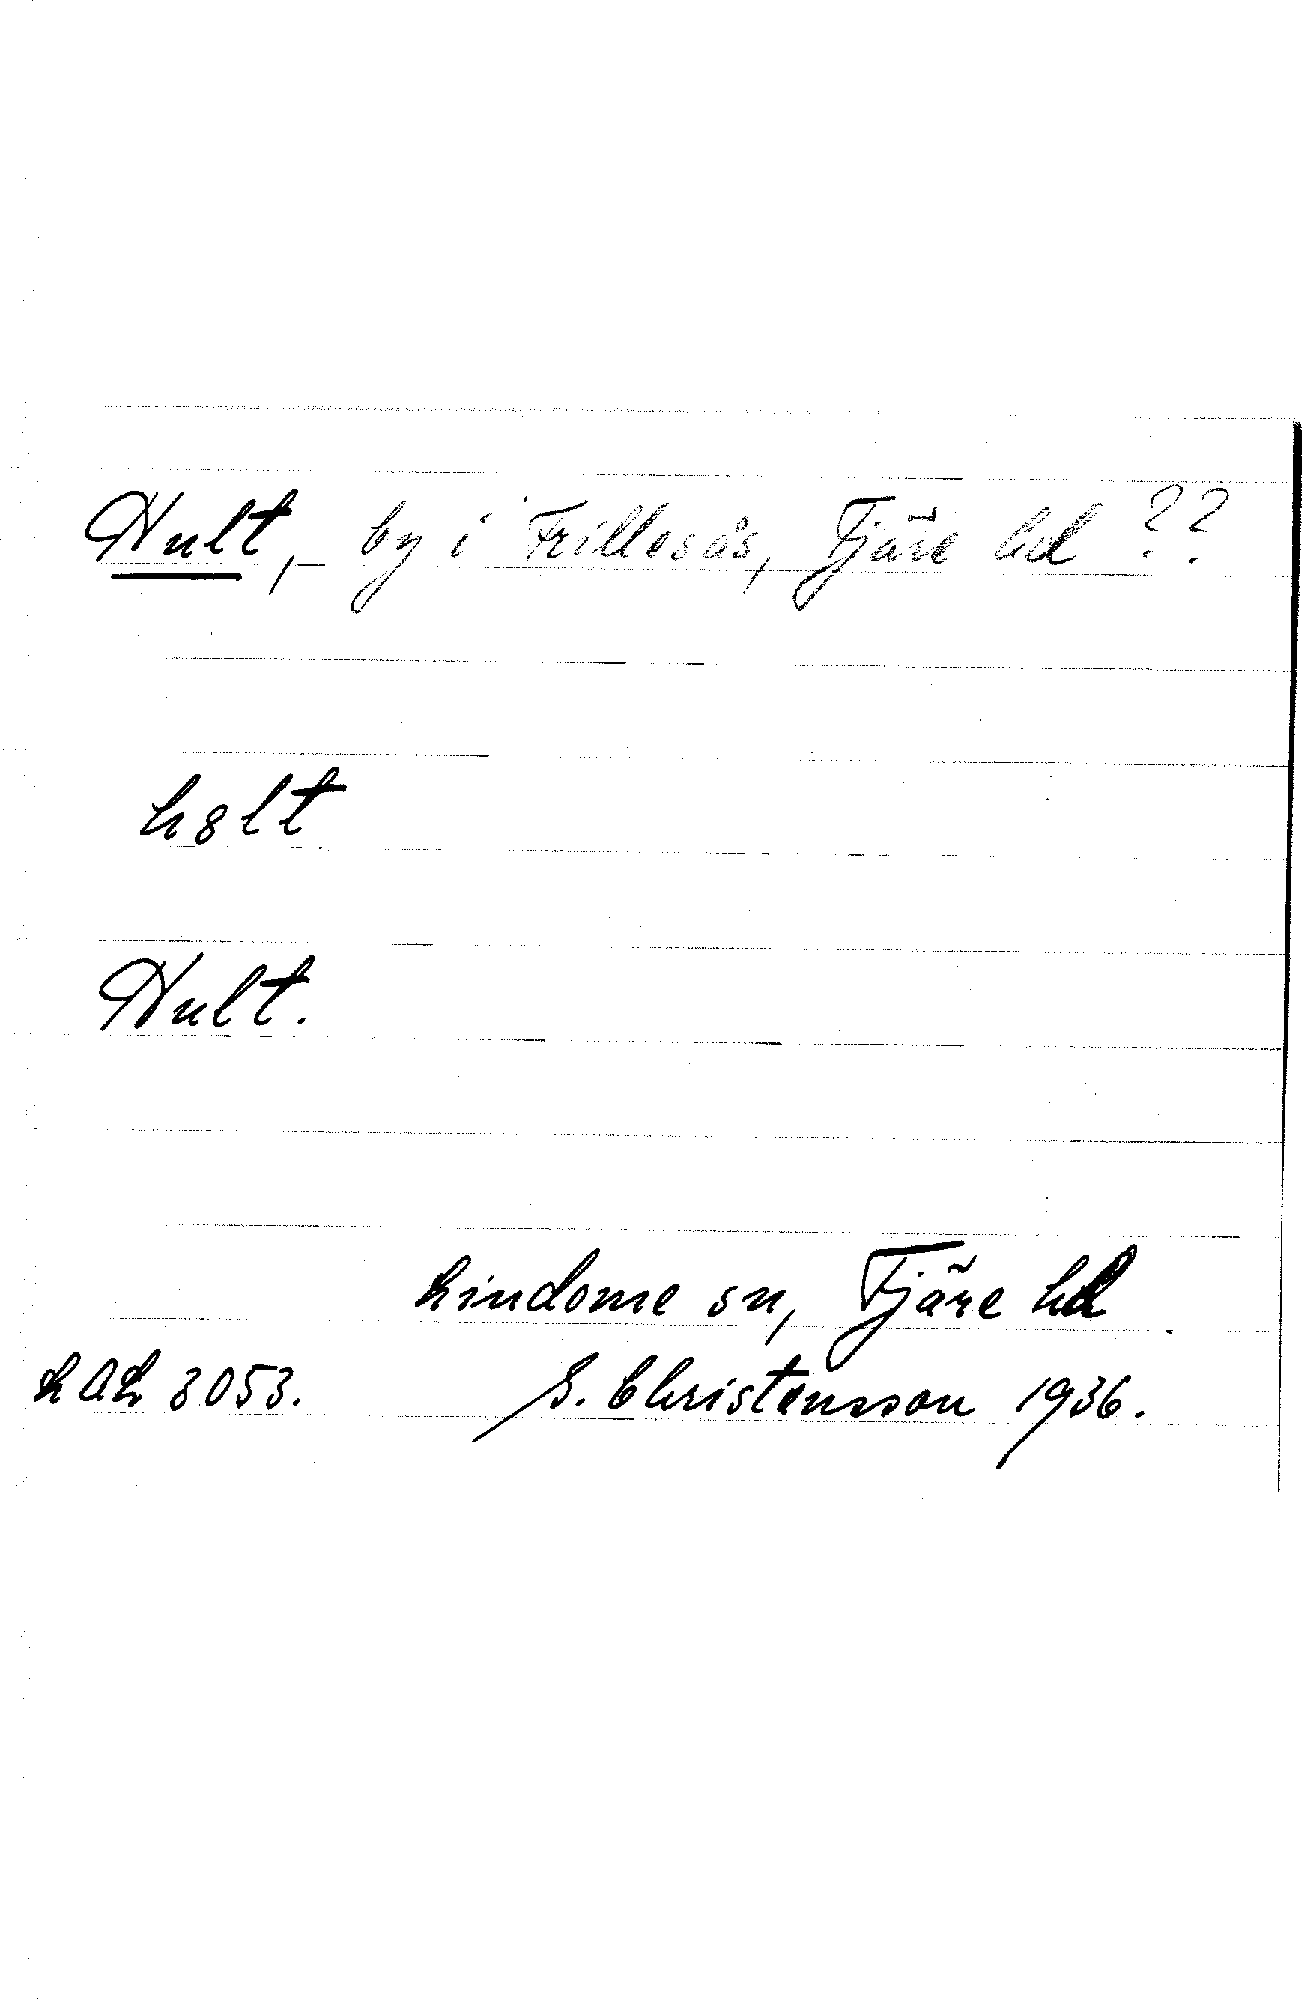 Hult, - by i Frillesås, Fjäre hd ??
h8lt
Hult.
Lindome sn, Fjäre hd
LAL 3053. S. Christensson 1936.